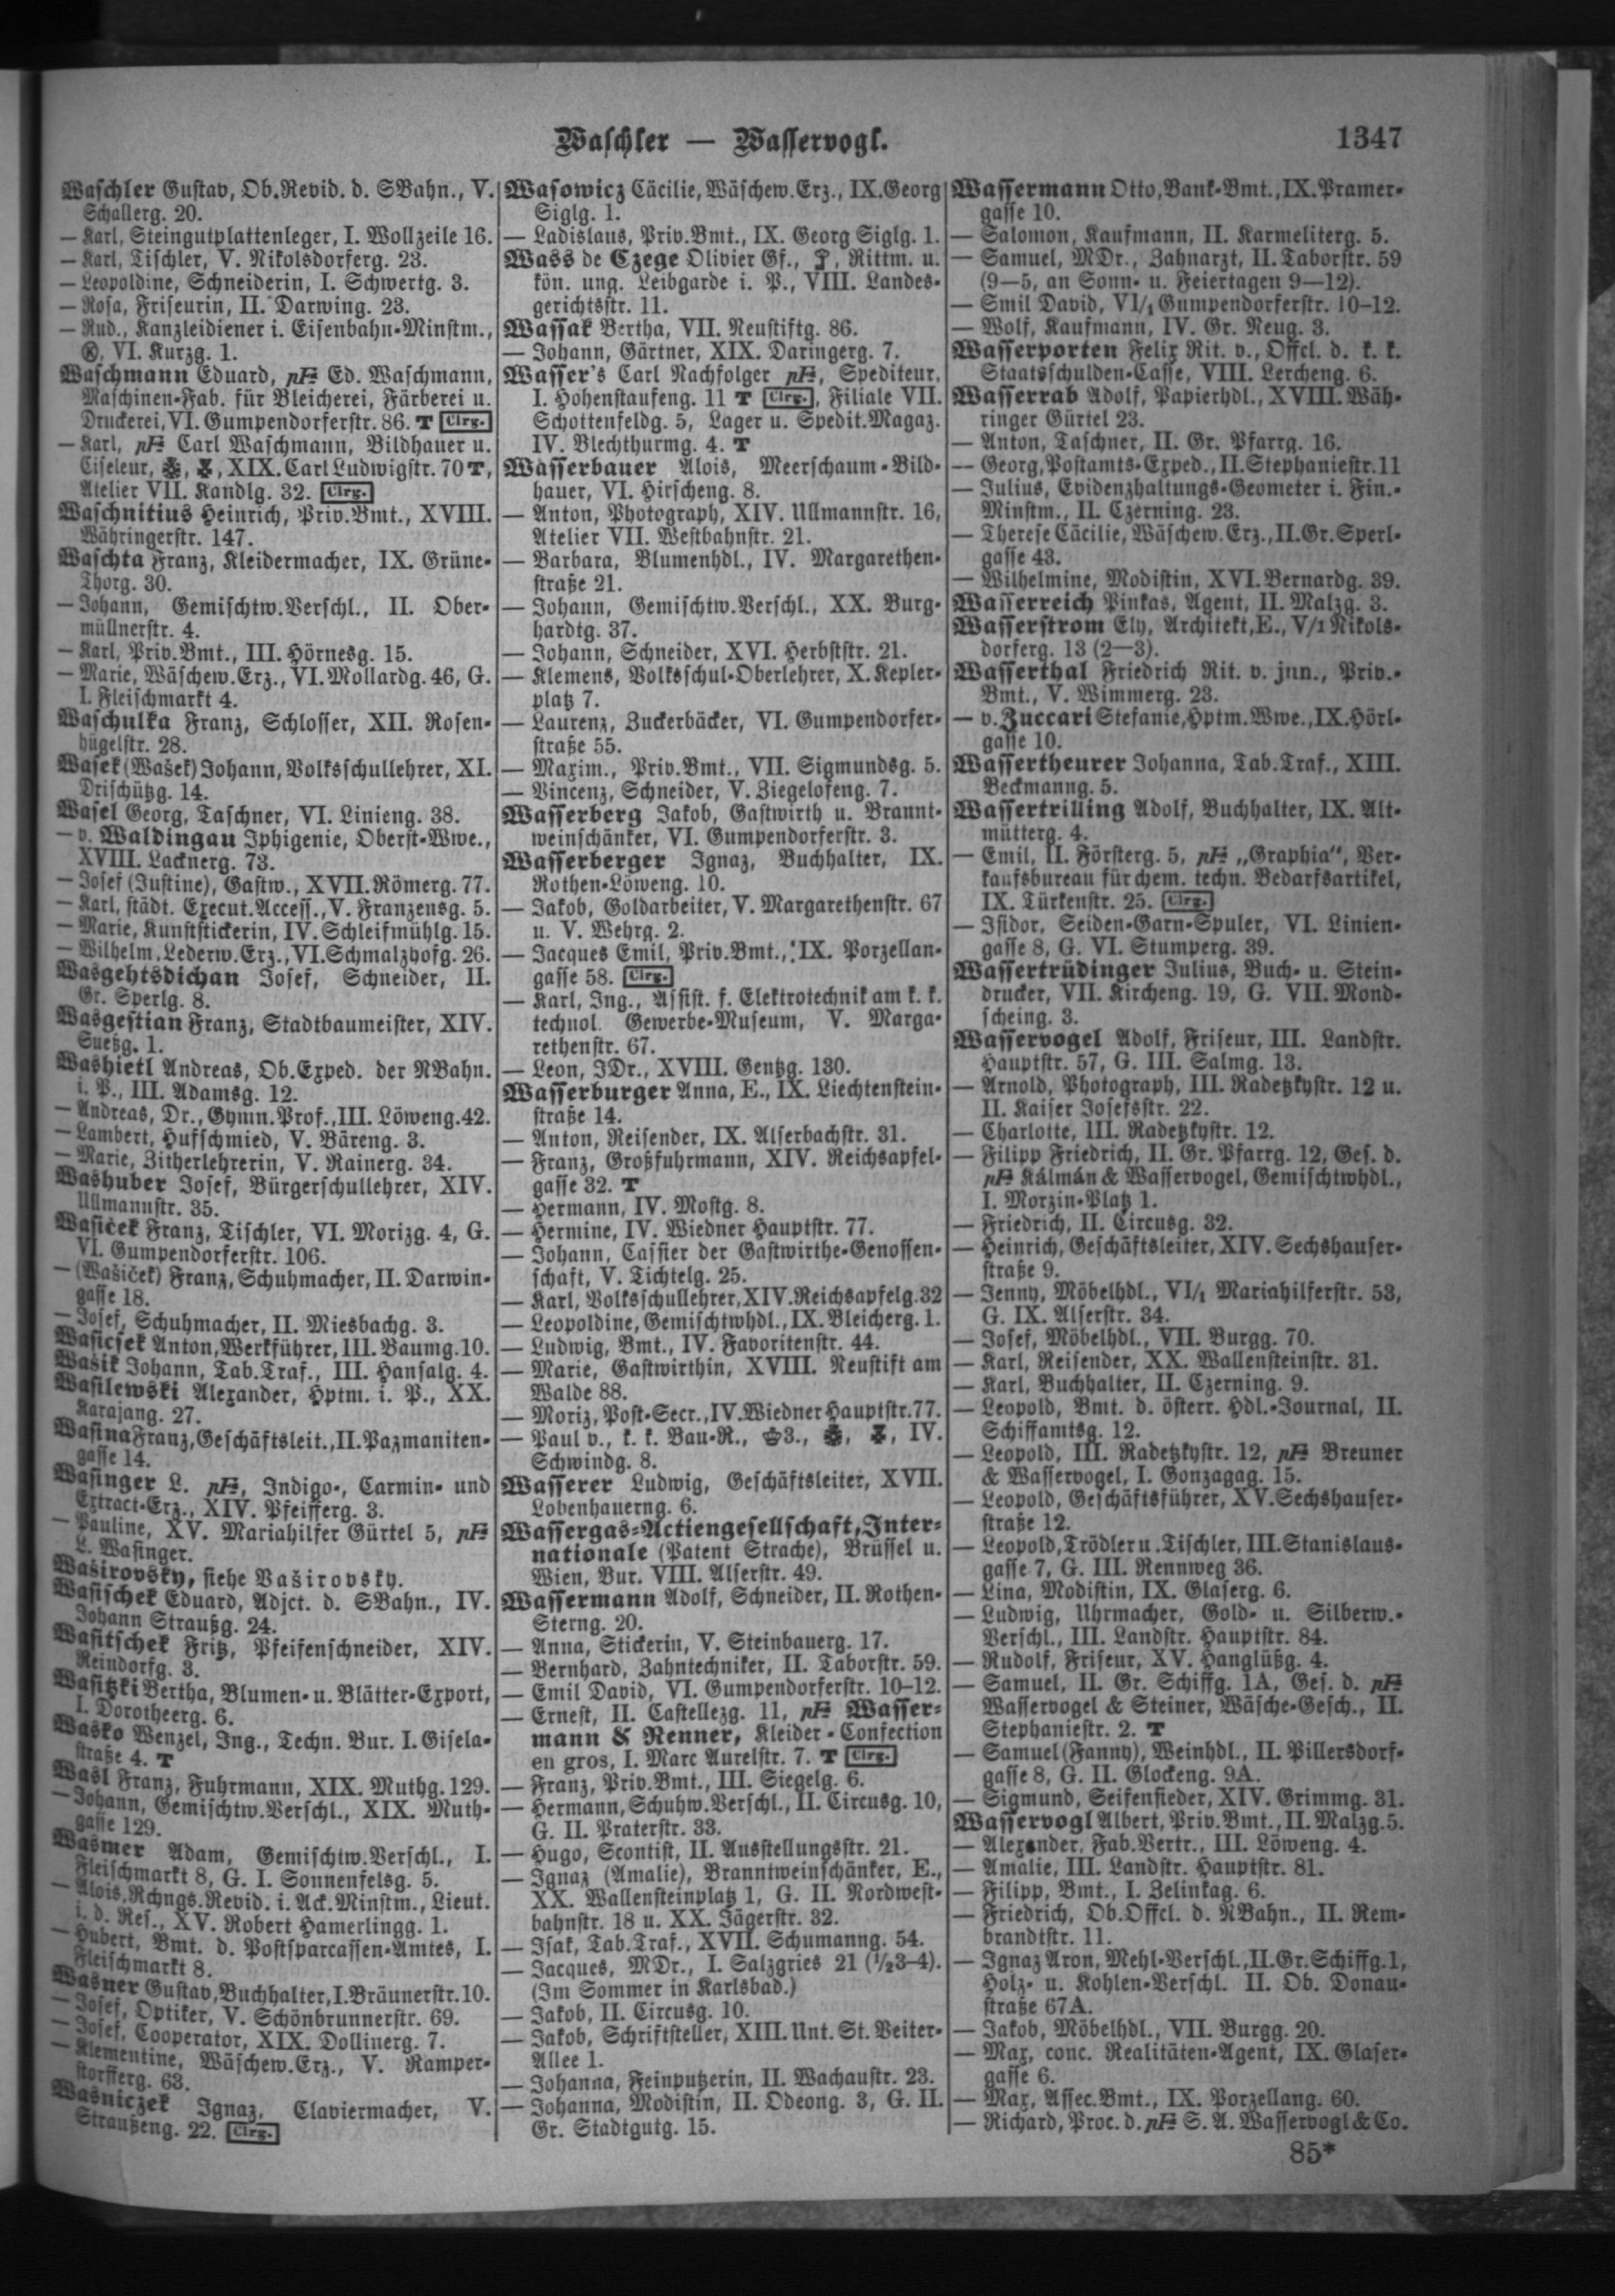 Waschler — Wasservogl.
1347
Waschler Gustav, Ob.Revid. d. SBahn., V.
Schallerg. 20.
— Karl, Steingutplattenleger, I. Wollzeile 16.
— Karl, Tischler, V. Nikolsdorferg. 23.
— Leopoldine, Schneiderin, I. Schwertg. 3.
— Rosa, Friseurin, II. Darwing. 23.
— Rud., Kanzleidiener i. Eisenbahn-Minstm.,
VI. Kurzg. 1.
Waschmann Eduard, Ed. Waschmann,
Maschinen-Fab. für Bleicherei, Färberei u.
Druckerei, VI. Gumpendorferstr. 86. T Clrg.
— Karl, Carl Waschmann, Bildhauer u.
Ciseleur, XIX. Carl Ludwigstr. 70 T,
Atelier VII. Kandlg. 32. Clrg.
Waschnitius Heinrich, Priv.Bmt., XVIII.
Währingerstr. 147.
Waschta Franz, Kleidermacher, IX. Grüne-
Thorg. 30.
— Johann, Gemischtw.Verschl., II. Ober-
müllnerstr. 4.
— Karl, Priv.Bmt., III. Hörnesg. 15.
— Marie, Wäschew.Erz., VI. Mollardg. 46, G.
I. Fleischmarkt 4.
Waschulka Franz, Schlosser, XII. Rosen-
hügelstr. 28.
Wasek (Wašek) Johann, Volksschullehrer, XI.
Drischützg. 14.
Wasel Georg, Taschner, VI. Linieng. 38.
— v. Waldingau Iphigenie, Oberst-Wwe.,
XVIII. Lacknerg. 73.
— Josef (Justine), Gastw., XVII. Römerg. 77.
— Karl, städt. Execut.Access., V. Franzensg. 5.
— Marie, Kunststickerin, IV. Schleifmühlg. 15.
— Wilhelm, Lederw.Erz., VI. Schmalzhofg. 26.
Wasgehtsdichan Josef, Schneider, II.
Gr. Sperlg. 8.
Wasgestian Franz, Stadtbaumeister, XIV.
Sueßg. 1.
Washietl Andreas, Ob.Exped. der NBahn.
i. P., III. Adamsg. 12.
— Andreas, Dr., Gymn.Prof., III. Löweng. 42.
— Lambert, Hufschmied, V. Bäreng. 3.
— Marie, Zitherlehrerin, V. Rainerg. 34.
Washuber Josef, Bürgerschullehrer, XIV.
Ullmannstr. 35.
Wasiček Franz, Tischler, VI. Morizg. 4, G.
VI. Gumpendorferstr. 106.
— (Wašiček) Franz, Schuhmacher, II. Darwin-
gasse 18.
— Josef, Schuhmacher, II. Miesbachg. 3.
Wasicsek Anton, Werkführer, III. Baumg. 10.
Wašik Johann, Tab.Traf., III. Hansalg. 4.
Wasilewski Alexander, Hptm. i. P., XX.
Karajang. 27.
Wasina Franz, Geschäftsleit., II. Pazmaniten-
gasse 14.
Wasinger L., Indigo-, Carmin- und
Extract-Erz., XIV. Pfeifferg. 3.
— Pauline, XV. Mariahilfer Gürtel 5,
L. Wasinger.
Waširovsky, siehe Vaširovsky.
Wasischek Eduard, Adjct. d. SBahn., IV.
Johann Straußg. 24.
Wasitschek Fritz, Pfeifenschneider, XIV.
Reindorfg. 3.
Wasitzki Bertha, Blumen- u. Blätter-Export,
I. Dorotheerg. 6.
Wasko Wenzel, Ing., Techn. Bur. I. Gisela-
straße 4. T
Wasl Franz, Fuhrmann, XIX. Muthg. 129.
— Johann, Gemischtw.Verschl., XIX. Muth-
gasse 129.
Wasmer Adam, Gemischtw.Verschl., I.
Fleischmarkt 8, G. I. Sonnenfelsg. 5.
— Alois, Rchngs.Revid. i. Ack.Minstm., Lieut.
i. d. Res., XV. Robert Hamerlingg. 1.
— Hubert, Bmt. d. Postsparcassen-Amtes, I.
Fleischmarkt 8.
Wasner Gustav, Buchhalter, I. Bräunerstr. 10.
— Josef, Optiker, V. Schönbrunnerstr. 69.
— Josef, Cooperator, XIX. Dollinerg. 7.
— Klementine, Wäschew.Erz., V. Ramper-
storfferg. 63.
Wasniczek Ignaz, Claviermacher, V.
Straußeng. 22. Clrg.
Wasowicz Cäcilie, Wäschew.Erz., IX. Georg
Siglg. 1.
— Ladislaus, Priv.Bmt., IX. Georg Siglg. 1.
Wass de Czege Olivier Gf., Rittm. u.
kön. ung. Leibgarde i. P., VIII. Landes-
gerichtsstr. 11.
Wassak Bertha, VII. Neustiftg. 86.
— Johann, Gärtner, XIX. Daringerg. 7.
Wasser's Carl Nachfolger, Spediteur,
I. Hohenstaufeng. 11 T Clrg., Filiale VII.
Schottenfeldg. 5, Lager u. Spedit.Magaz.
IV. Blechthurmg. 4. T
Wasserbauer Alois, Meerschaum-Bild-
hauer, VI. Hirscheng. 8.
— Anton, Photograph, XIV. Ullmannstr. 16,
Atelier VII. Westbahnstr. 21.
— Barbara, Blumenhdl., IV. Margarethen-
straße 21.
— Johann, Gemischtw.Verschl., XX. Burg-
hardtg. 37.
— Johann, Schneider, XVI. Herbststr. 21.
— Klemens, Volksschul-Oberlehrer, X. Kepler-
platz 7.
— Laurenz, Zuckerbäcker, VI. Gumpendorfer-
straße 55.
— Maxim., Priv.Bmt., VII. Sigmundsg. 5.
— Vincenz, Schneider, V. Ziegelofeng. 7.
Wasserberg Jakob, Gastwirth u. Brannt-
weinschänker, VI. Gumpendorferstr. 3.
Wasserberger Ignaz, Buchhalter, IX.
Rothen-Löweng. 10.
— Jakob, Goldarbeiter, V. Margarethenstr. 67
u. V. Wehrg. 2.
— Jacques Emil, Priv.Bmt., IX. Porzellan-
gasse 58. Clrg.
— Karl, Ing., Assist. f. Elektrotechnik am k. k.
technol. Gewerbe-Museum, V. Marga-
rethenstr. 67.
— Leon, JDr., XVIII. Gentzg. 130.
Wasserburger Anna, E., IX. Liechtenstein-
straße 14.
— Anton, Reisender, IX. Alserbachstr. 31.
— Franz, Großfuhrmann, XIV. Reichsapfel-
gasse 32. T
— Hermann, IV. Mostg. 8.
— Hermine, IV. Wiedner Hauptstr. 77.
— Johann, Cassier der Gastwirthe-Genossen-
schaft, V. Tichtelg. 25.
— Karl, Volksschullehrer, XIV. Reichsapfelg. 32
— Leopoldine, Gemischtwhdl., IX. Bleicherg. 1.
— Ludwig, Bmt., IV. Favoritenstr. 44.
— Marie, Gastwirthin, XVIII. Neustift am
Walde 88.
— Moriz, Post-Secr., IV. Wiedner Hauptstr. 77.
— Paul v., k. k. Bau-R., 3., IV.
Schwindg. 8.
Wasserer Ludwig, Geschäftsleiter, XVII.
Lobenhauerng. 6.
Wassergas-Actiengesellschaft, Inter-
nationale (Patent Strache), Brüssel u.
Wien, Bur. VIII. Alserstr. 49.
Wassermann Adolf, Schneider, II. Rothen-
Sterng. 20.
— Anna, Stickerin, V. Steinbauerg. 17.
— Bernhard, Zahntechniker, II. Taborstr. 59.
— Emil David, VI. Gumpendorferstr. 10-12.
— Ernest, II. Castellezg. 11, Wasser-
mann & Renner, Kleider-Confection
en gros, I. Marc Aurelstr. 7. T Clrg.
— Franz, Priv.Bmt., III. Siegelg. 6.
— Hermann, Schuhw.Verschl., II. Circusg. 10,
G. II. Praterstr. 33.
— Hugo, Scontist, II. Ausstellungsstr. 21.
— Ignaz (Amalie), Branntweinschänker, E.,
XX. Wallensteinplatz 1, G. II. Nordwest-
bahnstr. 18 u. XX. Jägerstr. 32.
— Isak, Tab.Traf., XVII. Schumanng. 54.
— Jacques, MDr., I. Salzgries 21 (½3-4).
(Im Sommer in Karlsbad.)
— Jakob, II. Circusg. 10.
— Jakob, Schriftsteller, XIII. Unt. St. Veiter-
Allee 1.
— Johanna, Feinputzerin, II. Wachaustr. 23.
— Johanna, Modistin, II. Odeong. 3, G. II.
Gr. Stadtgutg. 15.
Wassermann Otto, Bank-Bmt., IX. Pramer-
gasse 10.
— Salomon, Kaufmann, II. Karmeliterg. 5.
— Samuel, MDr., Zahnarzt, II. Taborstr. 59
(9—5, an Sonn- u. Feiertagen 9—12).
— Smil David, VI/1 Gumpendorferstr. 10-12.
— Wolf, Kaufmann, IV. Gr. Neug. 3.
Wasserporten Felix Rit. v., Offcl. d. k. k.
Staatsschulden-Casse, VIII. Lercheng. 6.
Wasserrab Adolf, Papierhdl., XVIII. Wäh-
ringer Gürtel 23.
— Anton, Taschner, II. Gr. Pfarrg. 16.
— Georg, Postamts-Exped., II. Stephaniestr. 11
— Julius, Evidenzhaltungs-Geometer i. Fin.-
Minstm., II. Czerning. 23.
— Therese Cäcilie, Wäschew.Erz., II. Gr. Sperl-
gasse 43.
— Wilhelmine, Modistin, XVI. Bernardg. 39.
Wasserreich Pinkas, Agent, II. Malzg. 3.
Wasserstrom Ely, Architekt, E., V/1 Nikols-
dorferg. 13 (2—3).
Wasserthal Friedrich Rit. v. jun., Priv.-
Bmt., V. Wimmerg. 23.
— v. Zuccari Stefanie, Hptm.Wwe., IX. Hörl-
gasse 10.
Wassertheurer Johanna, Tab.Traf., XIII.
Beckmanng. 5.
Wassertrilling Adolf, Buchhalter, IX. Alt-
mütterg. 4.
— Emil, II. Försterg. 5, „Graphia“, Ver-
kaufsbureau für chem. techn. Bedarfsartikel,
IX. Türkenstr. 25. Clrg.
— Isidor, Seiden-Garn-Spuler, VI. Linien-
gasse 8, G. VI. Stumperg. 39.
Wassertrüdinger Julius, Buch- u. Stein-
drucker, VII. Kircheng. 19, G. VII. Mond-
scheing. 3.
Wasservogel Adolf, Friseur, III. Landstr.
Hauptstr. 57, G. III. Salmg. 13.
— Arnold, Photograph, III. Radetzkystr. 12 u.
II. Kaiser Josefsstr. 22.
— Charlotte, III. Radetzkystr. 12.
— Filipp Friedrich, II. Gr. Pfarrg. 12, Ges. d.
Kálmán & Wasservogel, Gemischtwhdl.,
I. Morzin-Platz 1.
— Friedrich, II. Circusg. 32.
— Heinrich, Geschäftsleiter, XIV. Sechshauser-
straße 9.
— Jenny, Möbelhdl., VI/1 Mariahilferstr. 53,
G. IX. Alserstr. 34.
— Josef, Möbelhdl., VII. Burgg. 70.
— Karl, Reisender, XX. Wallensteinstr. 31.
— Karl, Buchhalter, II. Czerning. 9.
— Leopold, Bmt. d. österr. Hdl.-Journal, II.
Schiffamtsg. 12.
— Leopold, III. Radetzkystr. 12, Breuner
& Wasservogel, I. Gonzagag. 15.
— Leopold, Geschäftsführer, XV. Sechshauser-
straße 12.
— Leopold, Trödler u. Tischler, III. Stanislaus-
gasse 7, G. III. Rennweg 36.
— Lina, Modistin, IX. Glaserg. 6.
— Ludwig, Uhrmacher, Gold- u. Silberw.-
Verschl., III. Landstr. Hauptstr. 84.
— Rudolf, Friseur, XV. Hanglüßg. 4.
— Samuel, II. Gr. Schiffg. 1A, Ges. d.
Wasservogel & Steiner, Wäsche-Gesch., II.
Stephaniestr. 2. T
— Samuel (Fanny), Weinhdl., II. Pillersdorf-
gasse 8, G. II. Glockeng. 9A.
— Sigmund, Seifensieder, XIV. Grimmg. 31.
Wasservogl Albert, Priv.Bmt., II. Malzg. 5.
— Alexander, Fab.Vertr., III. Löweng. 4.
— Amalie, III. Landstr. Hauptstr. 81.
— Filipp, Bmt., I. Zelinkag. 6.
— Friedrich, Ob.Offcl. d. NBahn., II. Rem-
brandtstr. 11.
— Ignaz Aron, Mehl-Verschl., II. Gr. Schiffg. 1,
Holz- u. Kohlen-Verschl. II. Ob. Donau-
straße 67A.
— Jakob, Möbelhdl., VII. Burgg. 20.
— Max, conc. Realitäten-Agent, IX. Glaser-
gasse 6.
— Max, Assec.Bmt., IX. Porzellang. 60.
— Richard, Proc. d. S. A. Wasservogl & Co.
85*